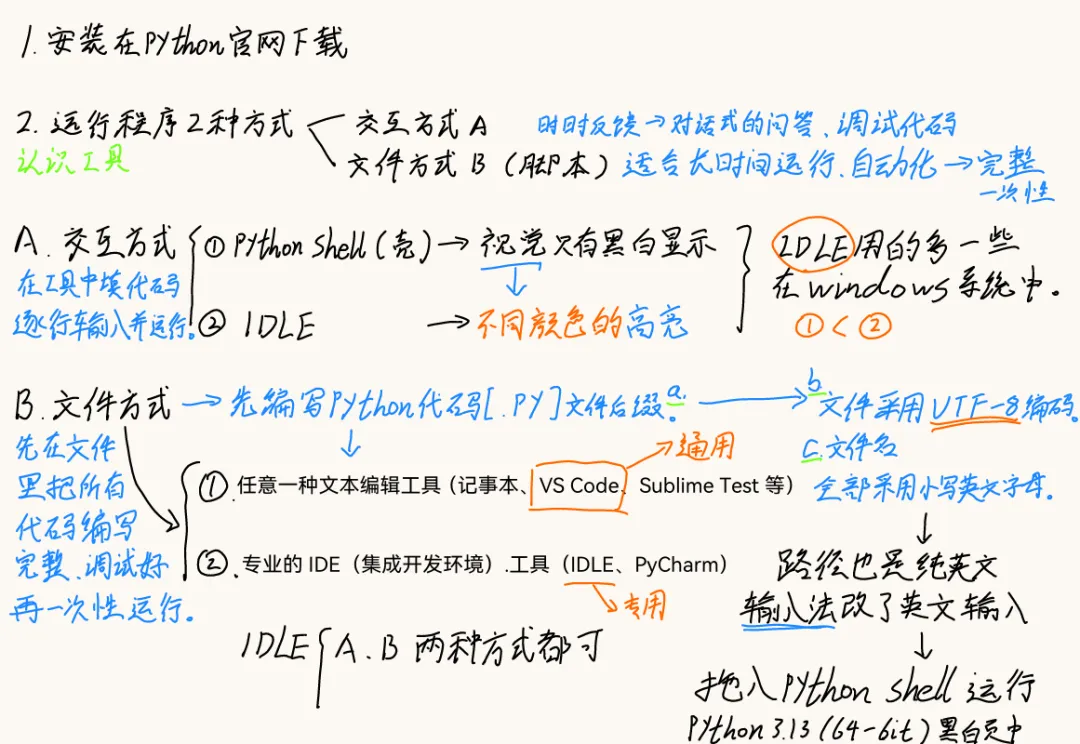 1.安装在Python官网下载
2.运行程序2种方式
认识工具
交互方式A 时时反馈→对话式的问答、调试代码
文件方式B(脚本)适合长时间运行、自动化→完整
一次性
A.交互方式
在工具中填代码
逐行输入并运行。
① Python shell(壳)→视觉只有黑白显示
② IDLE →不同颜色的高亮
IDLE用的多一些
在windows系统中.
①<②
B.文件方式→先编写Python代码[.PY]文件后缀。a.
b.文件采用UTF-8编码.
先在文件
里把所有
代码编写
完整、调试好
再一次性运行。
通用
①.任意一种文本编辑工具(记事本、VS Code、Sublime Test 等)
②.专业的 IDE(集成开发环境).工具(IDLE、PyCharm)
专用
c.文件名
全部采用小写英文字母.
路径也是纯英文
输入法改了英文输入
拖入Python shell运行
Python 3.13(64-bit)黑白页中
IDLE{A.B 两种方式都可